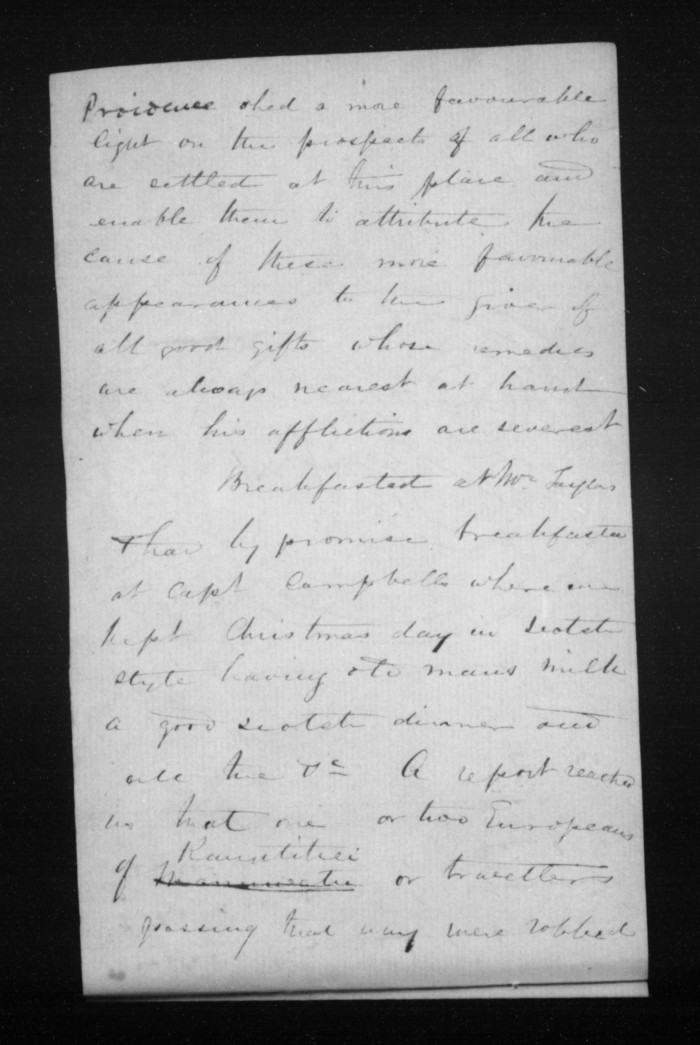 Providence shed a more favourable
light on the prospects of all who
are settled at this place and
enable them to attribute the
cause of these more favourable
appearances to the giver of
all good gifts whose remedies
are always nearest at hand
when his afflictions are severest
Breakfasted at Mr Taylors
by promise breakfasted
at Capt Campbells where we
kept Christmas day in Scotch
style having old mans milk
a good Scotch dinner and
all the &c A report reached
us that one or two Europeans
of Rangitikei
Manawatu or travellers
passing that way were robbed